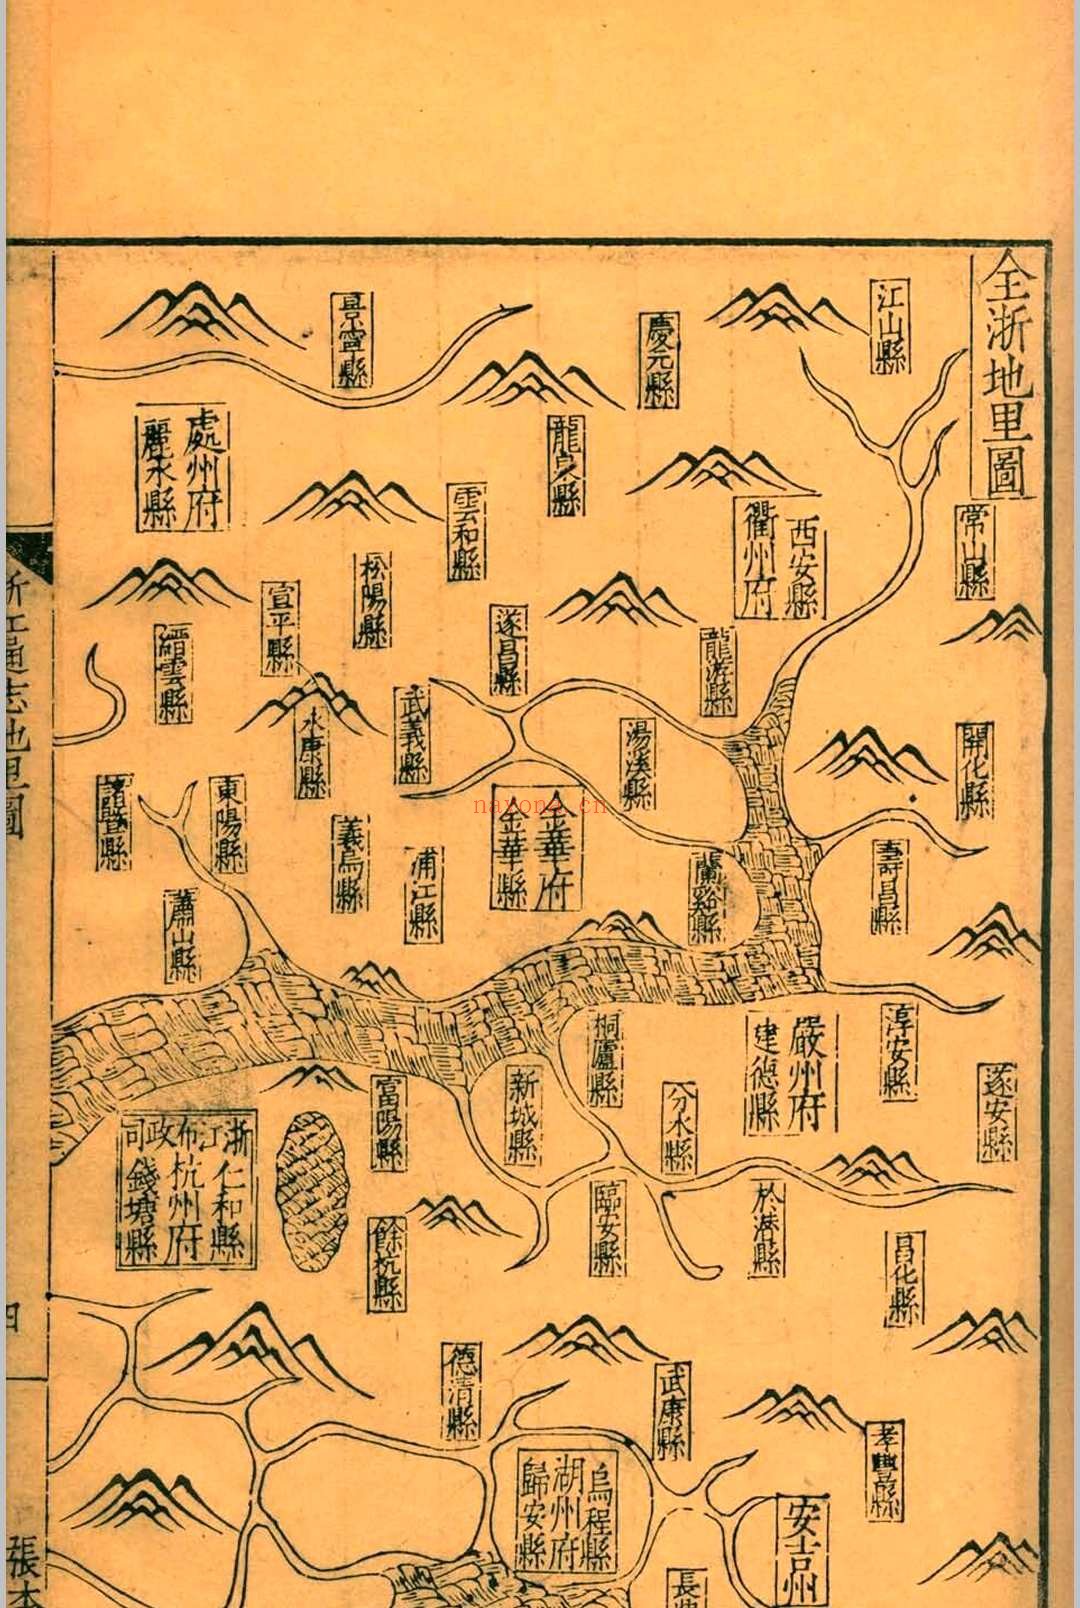 全浙地里圖
江山縣
常山縣
開化縣
壽昌縣
淳安縣
遂安縣
昌化縣
孝豐縣
安吉州
慶元縣
龍泉縣
景寧縣
雲和縣
處州府
麗水縣
西安縣
衢州府
龍游縣
遂昌縣
松陽縣
宣平縣
縉雲縣
永康縣
武義縣
湯溪縣
金華府
金華縣
蘭谿縣
東陽縣
義烏縣
浦江縣
諸暨縣
蕭山縣
嚴州府
建德縣
桐廬縣
分水縣
新城縣
富陽縣
於潛縣
臨安縣
餘杭縣
浙江布政司
仁和縣
杭州府
錢塘縣
武康縣
德清縣
烏程縣
湖州府
歸安縣
長
浙江通志地里圖
四
張本
nayona.cn